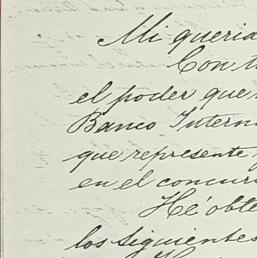 Mi querid
Con
el poder que
Banco Intern
que represente
en el concur
Hé obte
los siguientes